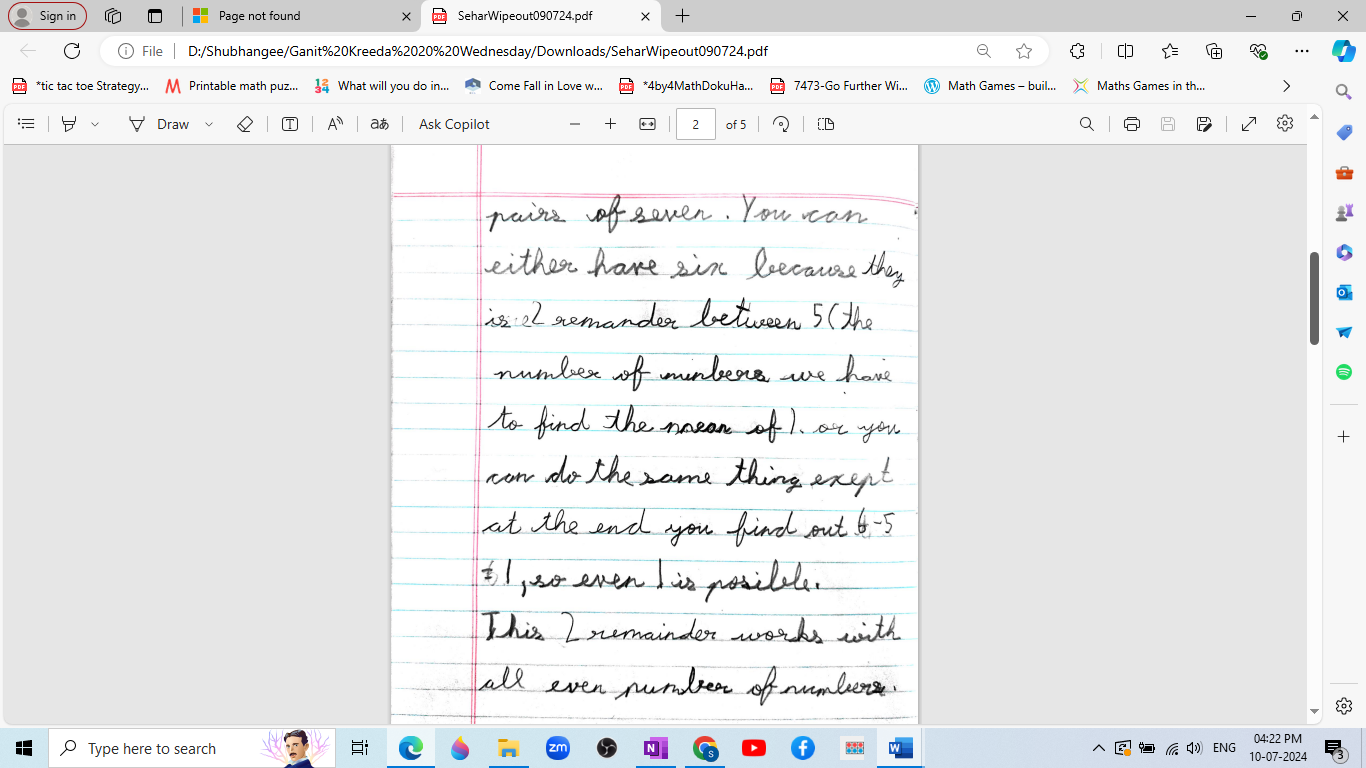 Sign in
Page not found
SeharWipeout090724.pdf
File
D:/Shubhangee/Ganit%20Kreeda%2020%20Wednesday/Downloads/SeharWipeout090724.pdf
*tic tac toe Strategy...
Printable math puz...
What will you do in...
Come Fall in Love w...
*4by4MathDokuHa...
7473-Go Further Wi...
Math Games – buil...
Maths Games in th...
Draw
Ask Copilot
2
of 5
pairs of seven. You can
either have six because they
is 2 remander between 5(the
number of munbers we have
to find the mean of). or you
can do the same thing exept
at the end you find out 6-5
= 1, so even 1 is posible.
This 2 remainder works with
all even number of numbers.
Type here to search
ENG
04:22 PM
10-07-2024
3